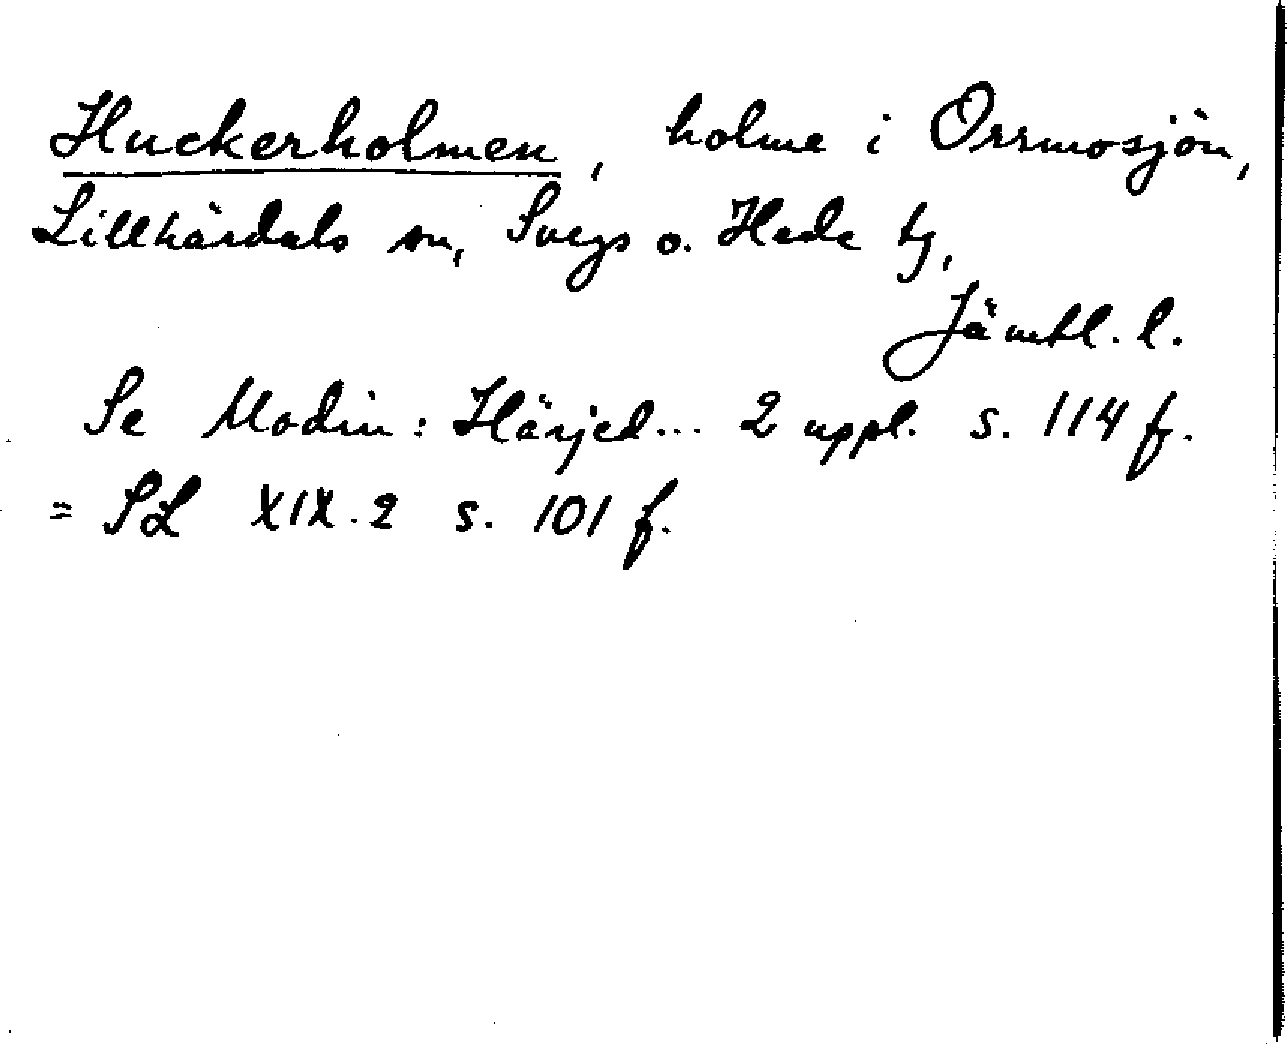 Huckerholmen, holme i Orrmosjön,
Lillhärdals sn, Svegs o. Hede tg,
Jämtl. l.
Se Modin: Härjed... 2 uppl. s. 114 f.
= SL XIX.2 s. 101 f.